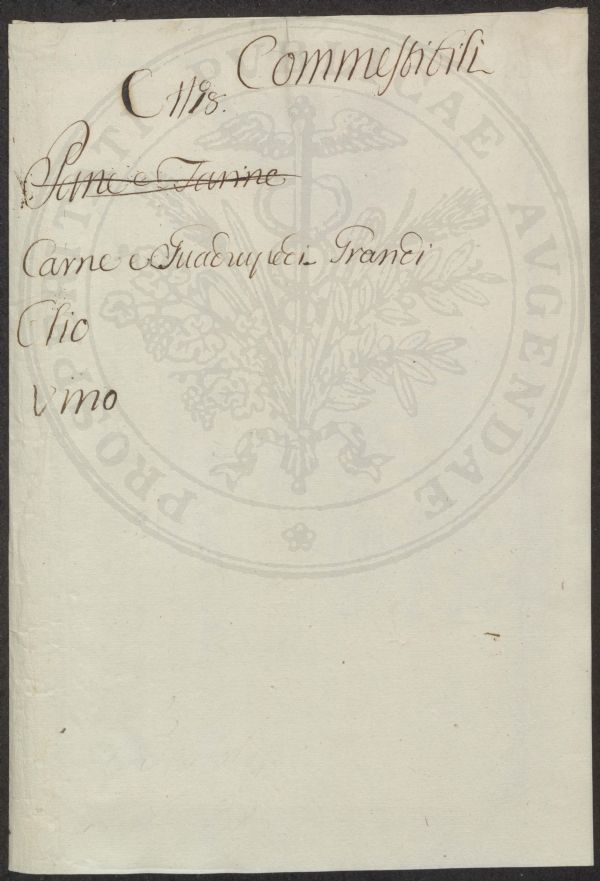 Commestibili
C 1198.
Pane e Farine
Carne e Quadrupedi Grandi
Olio
Vino
PROSPERITATI PUBLICAE AVGENDAE